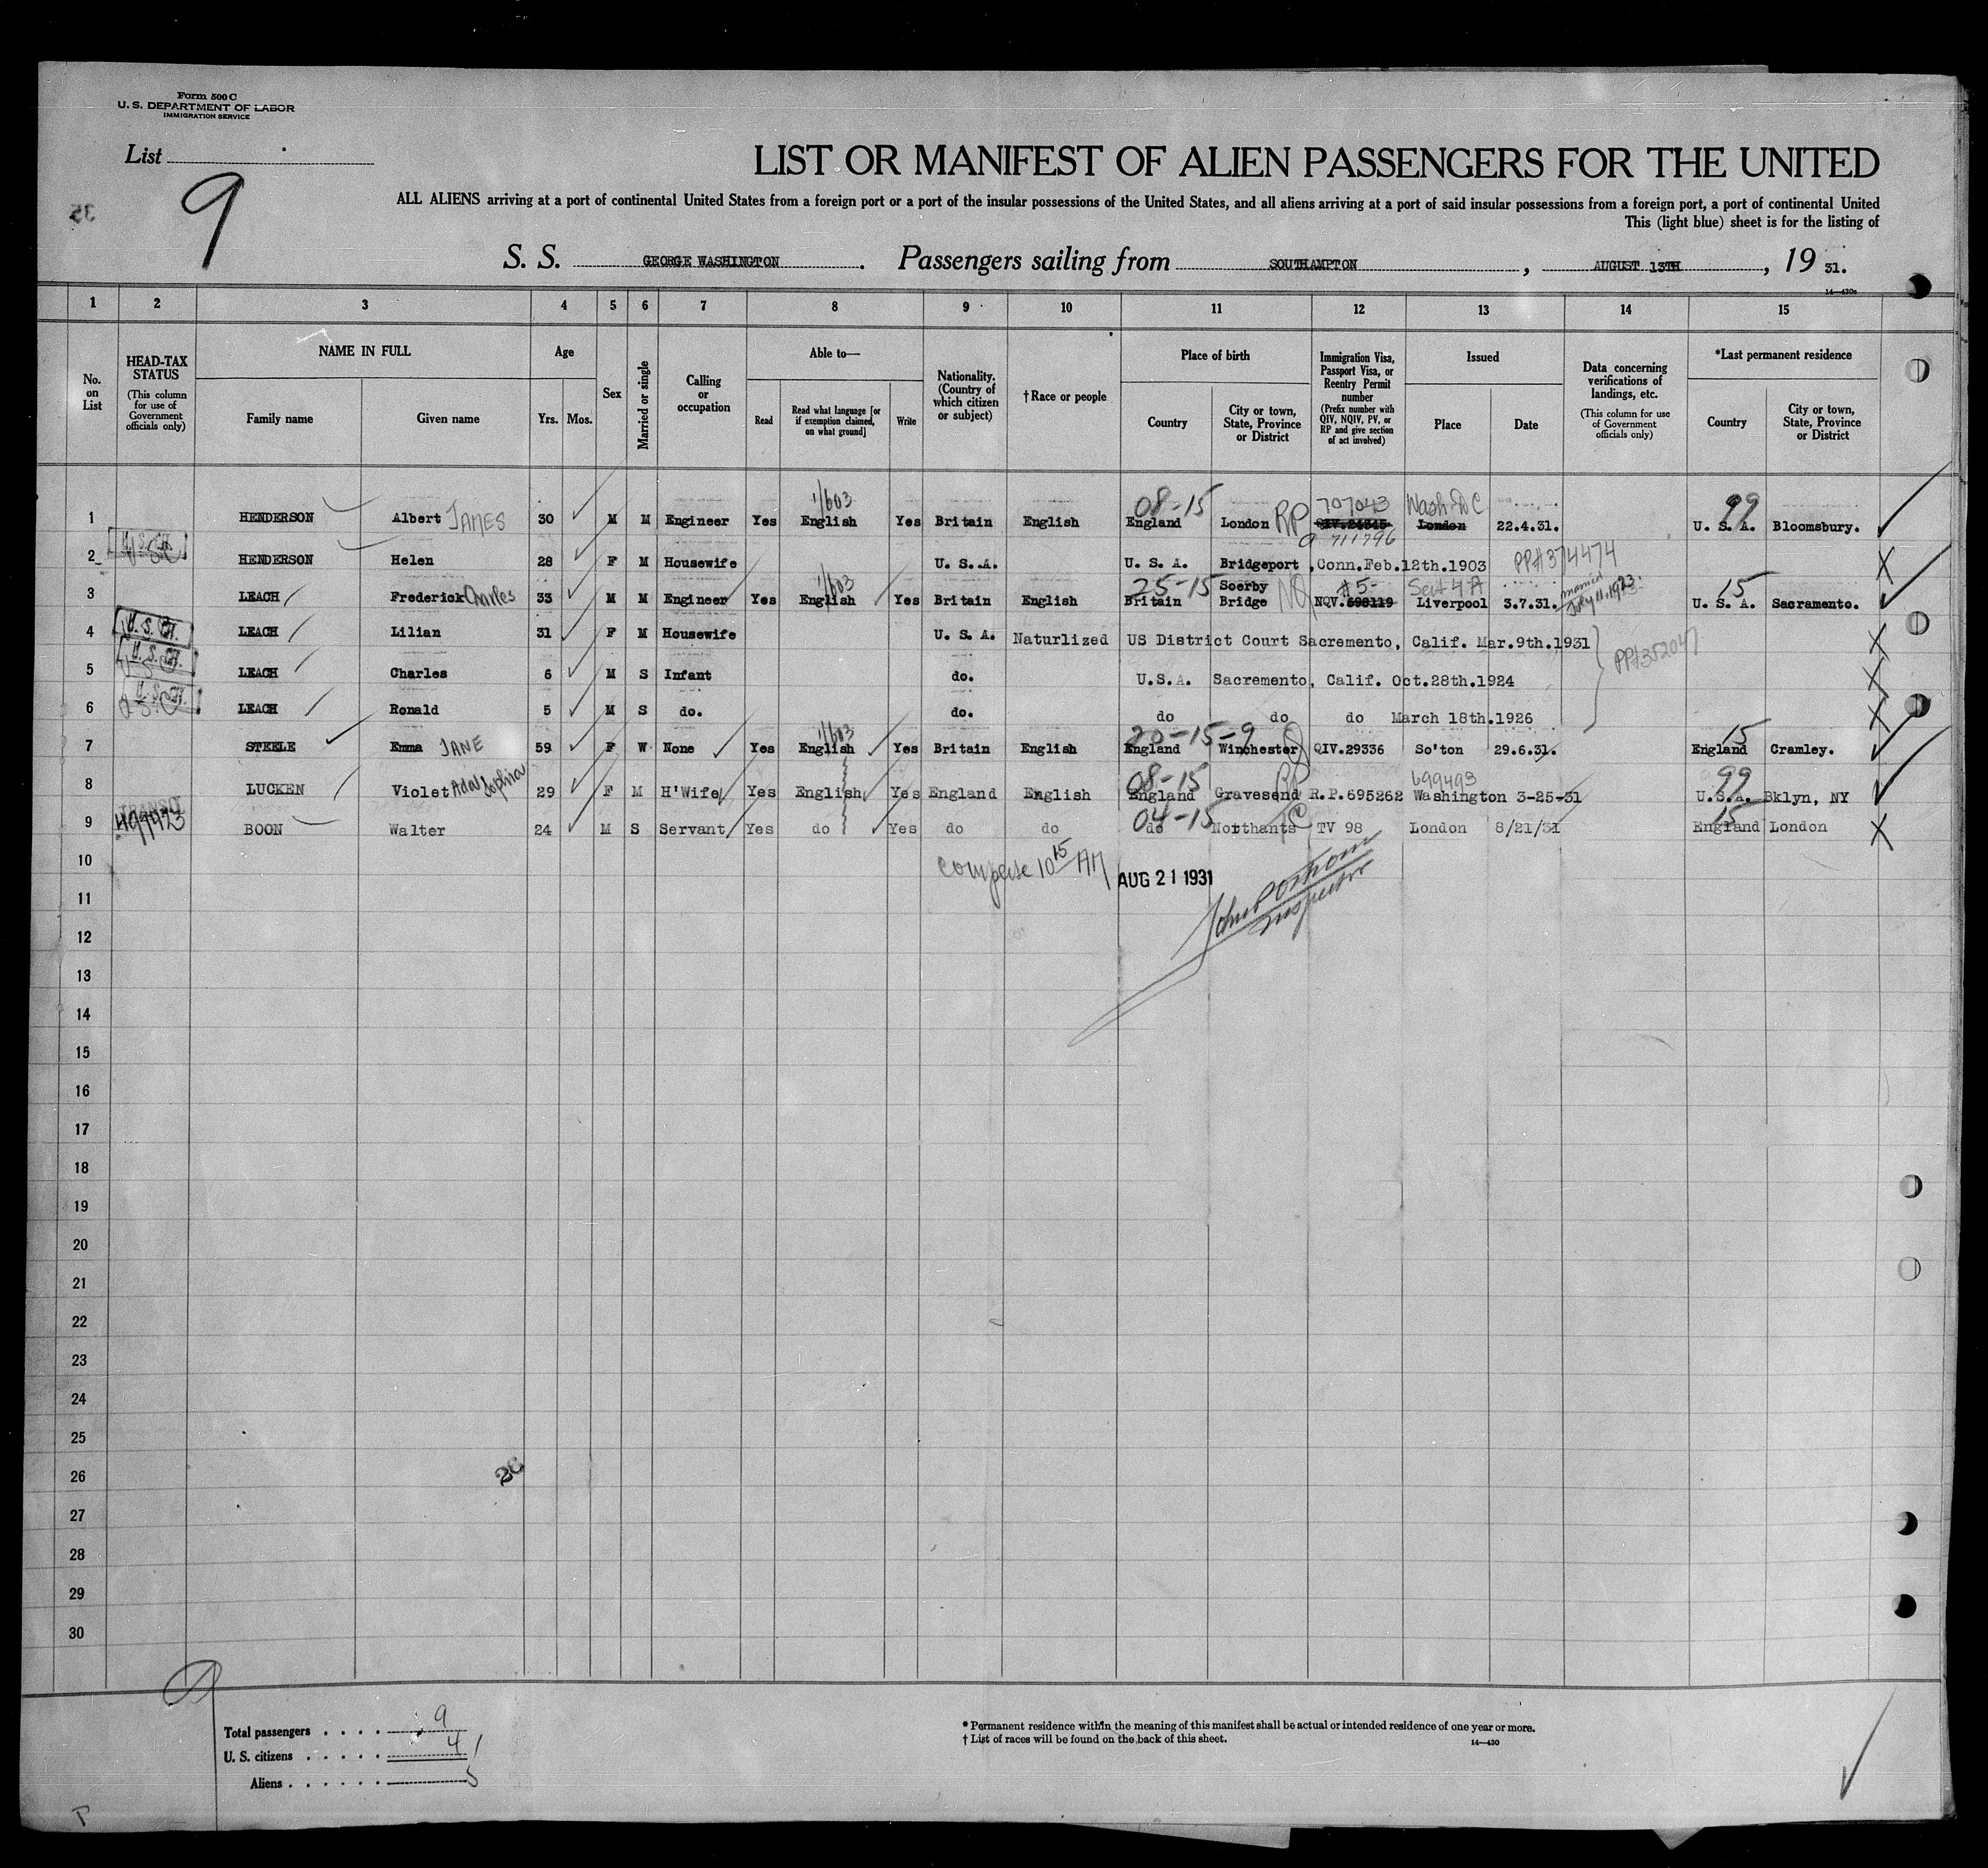 Form 500 C
U. S. DEPARTMENT OF LABOR
IMMIGRATION SERVICE
List
9
35
LIST OR MANIFEST OF ALIEN PASSENGERS FOR THE UNITED
ALL ALIENS arriving at a port of continental United States from a foreign port or a port of the insular possessions of the United States, and all aliens arriving at a port of said insular possessions from a foreign port, a port of continental United
This (light blue) sheet is for the listing of
S. S. GEORGE WASHINGTON. Passengers sailing from SOUTHAMPTON, AUGUST 13TH, 19 31.
14—430c
1 2 3 4 5 6 7 8 9 10 11 12 13 14 15
No. on List
HEAD-TAX STATUS (This column for use of Government officials only)
NAME IN FULL
Family name Given name
Age
Yrs. Mos.
Sex
Married or single
Calling or occupation
Able to—
Read Read what language [or if exemption claimed, on what ground] Write
Nationality. (Country of which citizen or subject)
†Race or people
Place of birth
Country City or town, State, Province or District
Immigration Visa, Passport Visa, or Reentry Permit number (Prefix number with QIV, NQIV, PV, or RP and give section of act involved)
Issued
Place Date
Data concerning verifications of landings, etc. (This column for use of Government officials only)
*Last permanent residence
Country City or town, State, Province or District
1/603 08-15 707043 Wash DC 99
1 HENDERSON Albert JAMES 30 M M Engineer Yes English Yes Britain English England London RP QIV.24345 London 22.4.31. U. S. A. Bloomsbury.
711796
2 HENDERSON Helen 28 F M Housewife U. S. A. U. S. A. Bridgeport, Conn. Feb. 12th. 1903 PP#374474
1/603 25-15 #5- Sect 4 A married July 11, 1923. 15
3 LEACH Frederick Charles 33 M M Engineer Yes English Yes Britain English Britain Soerby Bridge NQ NQV.698119 Liverpool 3.7.31. U. S. A. Sacramento.
U.S.Ct.
4 LEACH Lilian 31 F M Housewife U. S. A. Naturlized US District Court Sacremento, Calif. Mar. 9th. 1931
U.S.Ct.
5 LEACH Charles 6 M S Infant do. U.S.A. Sacremento, Calif. Oct. 28th. 1924
PP#352047
U.S.Ct.
6 LEACH Ronald 5 M S do. do. do do do March 18th. 1926
1/603 20-15-9 15
7 STEELE Emma JANE 59 F W None Yes English Yes Britain English England Winchester QIV.29336 So'ton 29.6.31. England Cramley.
08-15 RP 699493 99
8 LUCKEN Violet Ada Sophia 29 F M H'Wife Yes English Yes England English England Gravesend R.P.695262 Washington 3-25-31 U.S.A. Bklyn, NY
TRANSIT 497473 04-15 15
9 BOON Walter 24 M S Servant Yes do Yes do do do Northants TV 98 London 8/21/31 England London
10 AM
AUG 21 1931
Inspector
11
12
13
14
15
16
17
18
19
20
21
22
23
24
25
26
27
28
29
30
Total passengers 9
U. S. citizens 4
Aliens 5
* Permanent residence within the meaning of this manifest shall be actual or intended residence of one year or more.
† List of races will be found on the back of this sheet.
14—430